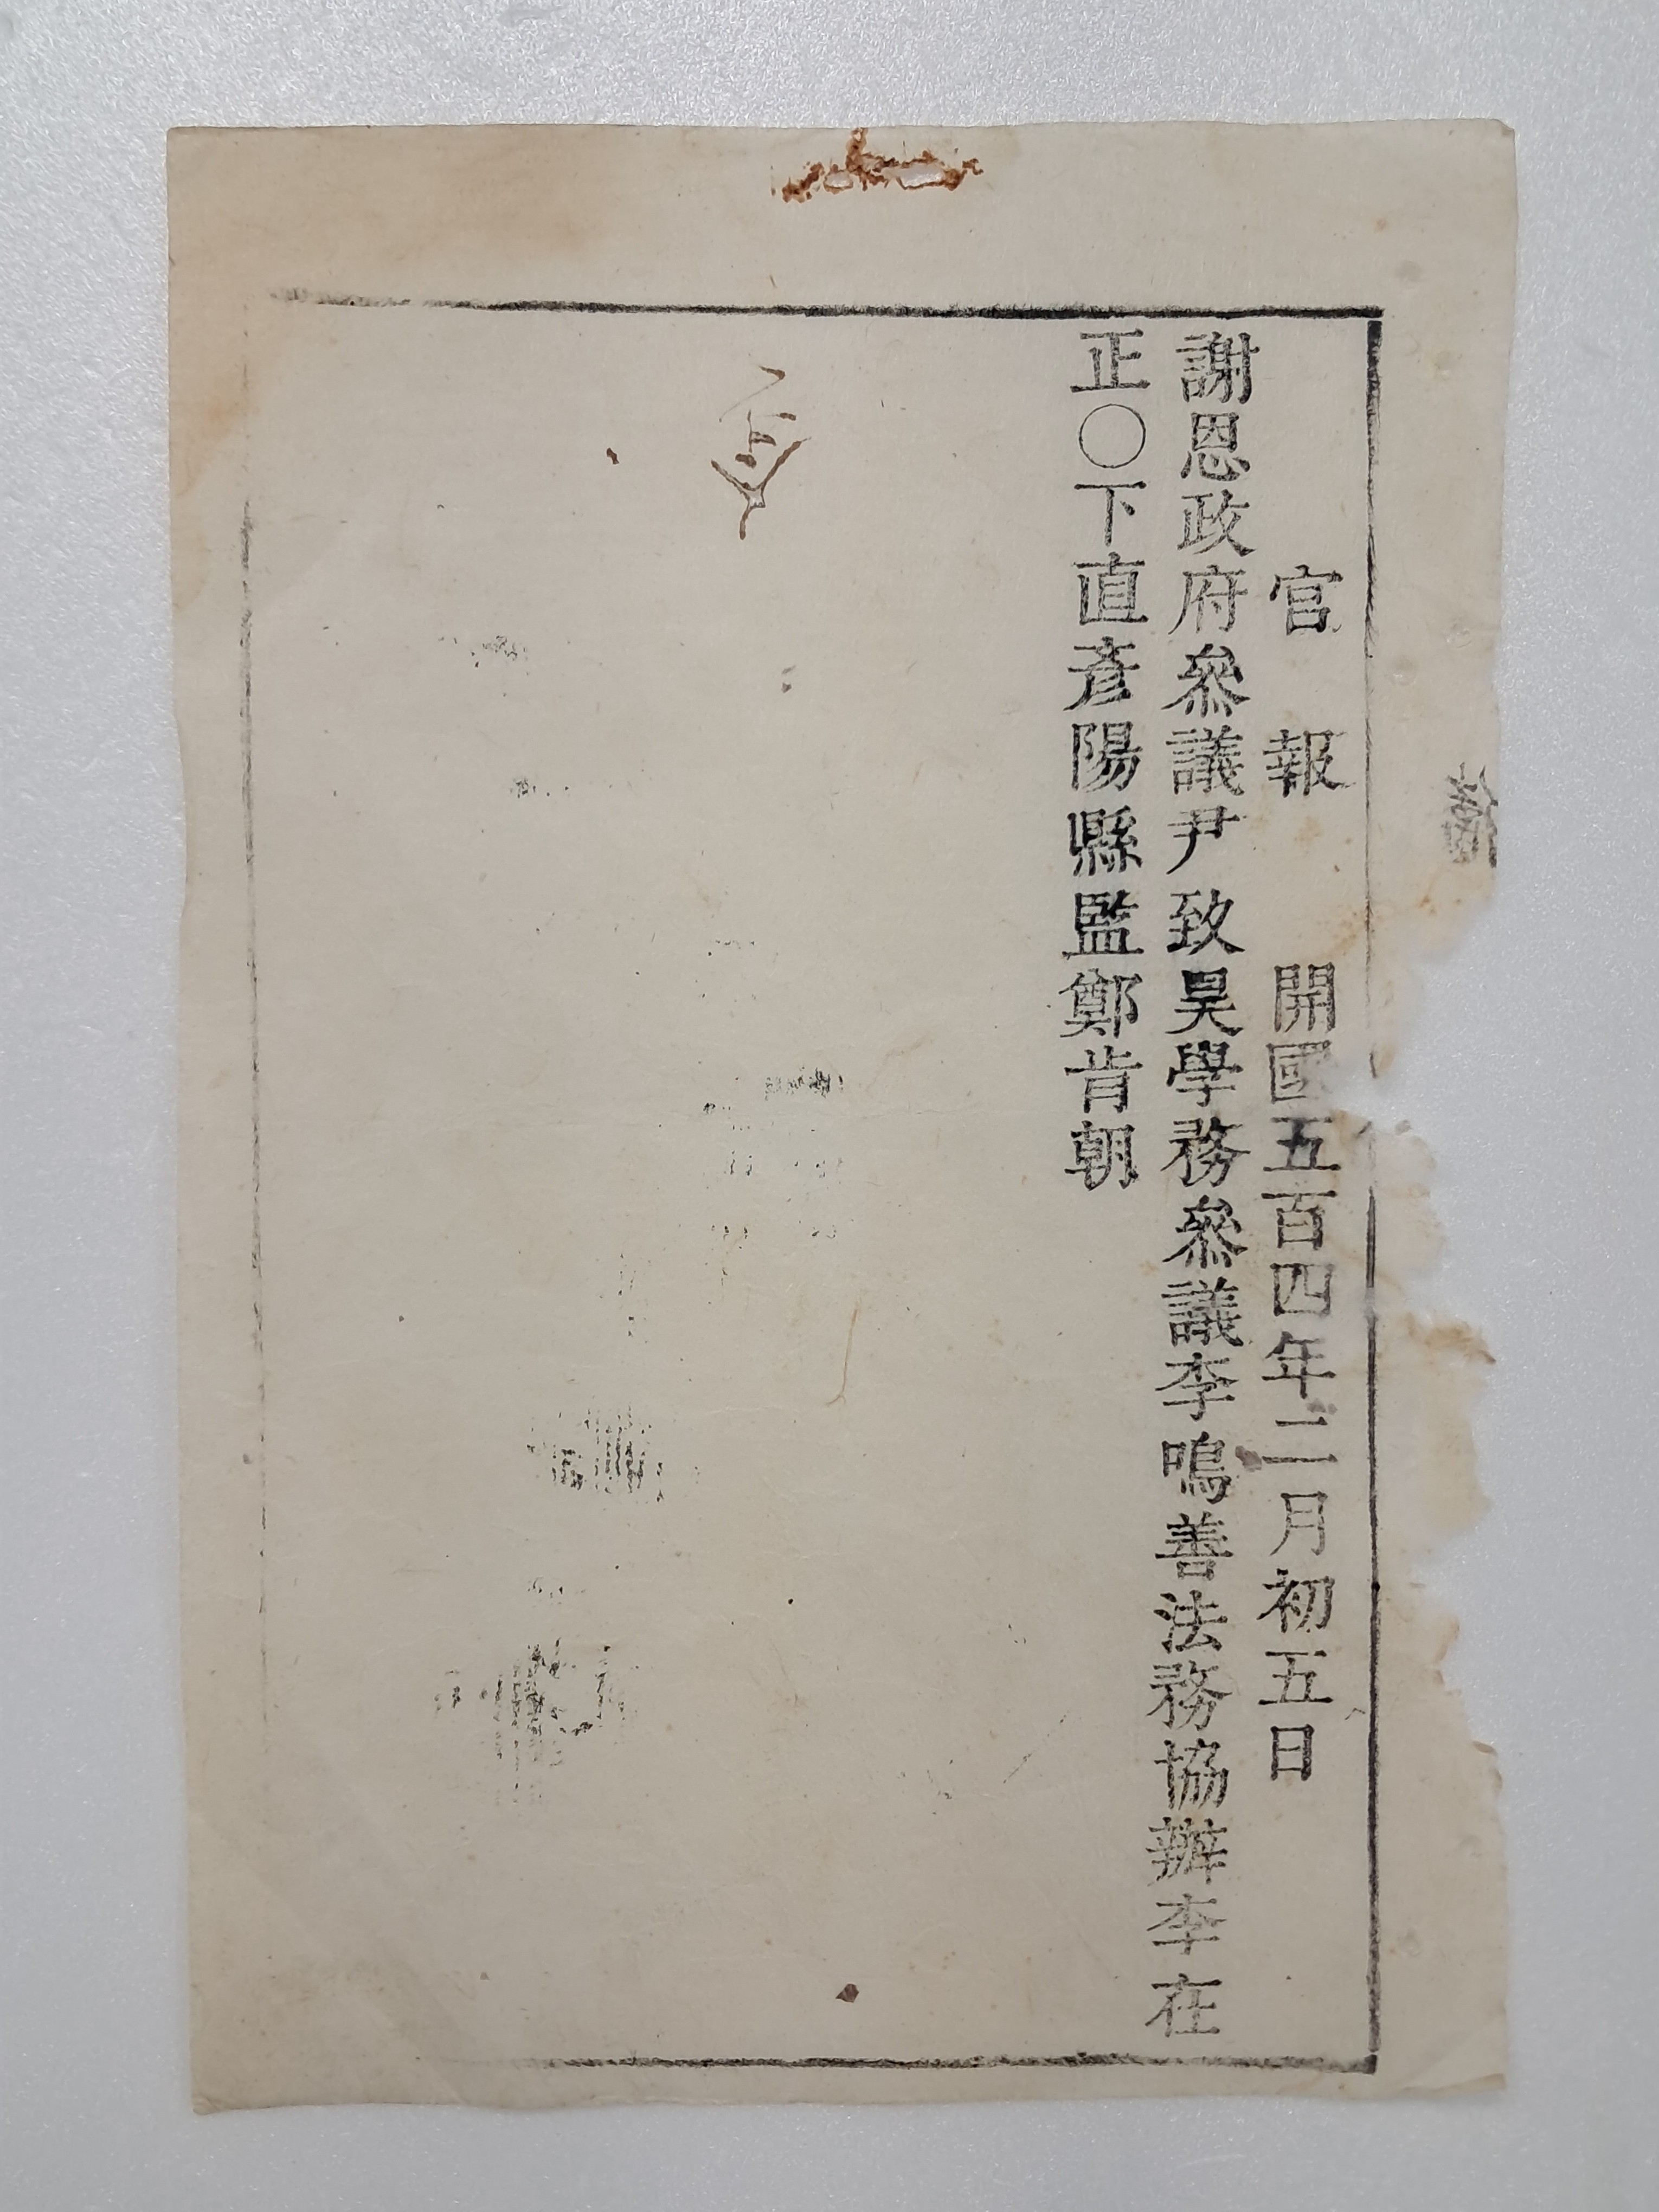 官報 開國五百四年二月初五日
謝恩政府參議尹致昊學務參議李鳴善法務協辦李在
正〇下直彥陽縣監鄭肯朝